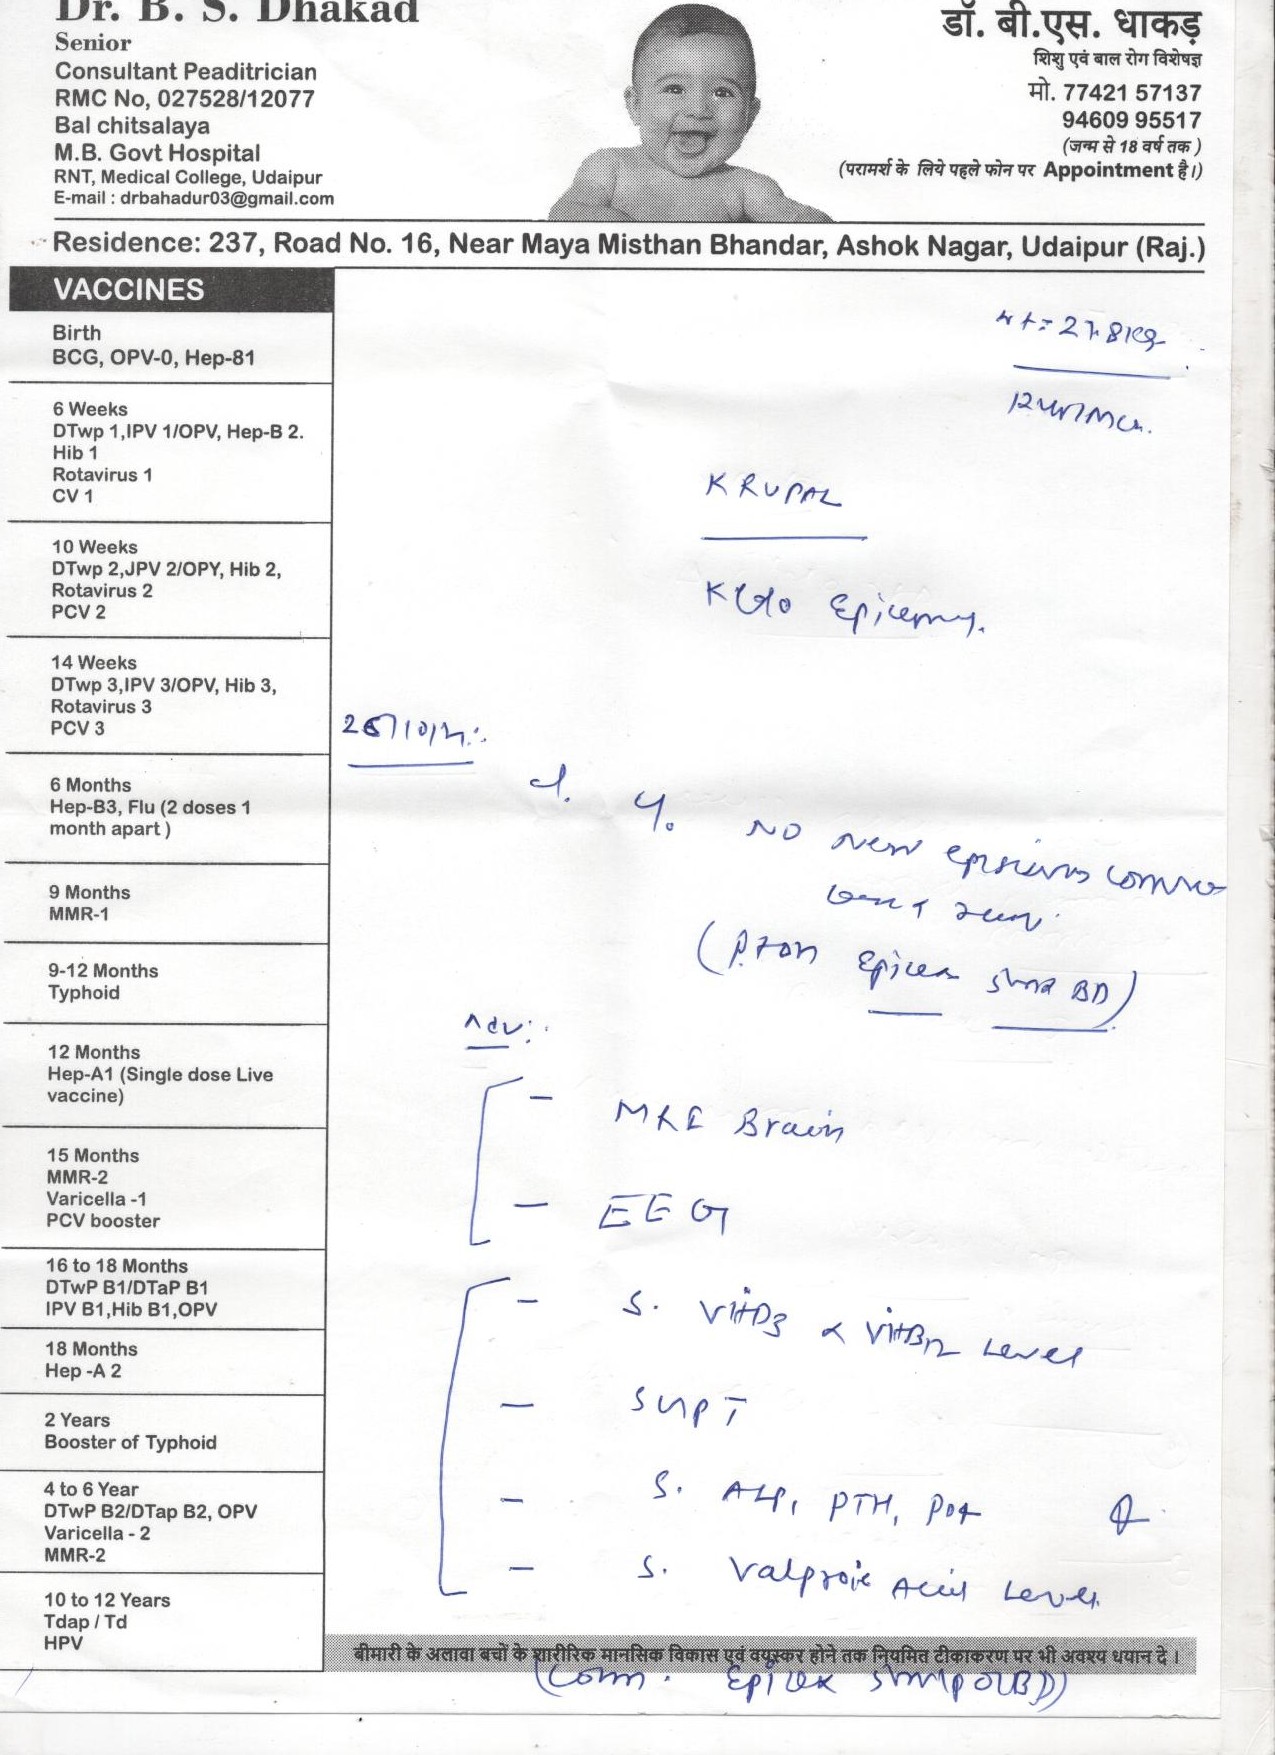 Dr. B. S. Dhakad
Senior
Consultant Peaditrician
RMC No, 027528/12077
Bal chitsalaya
M.B. Govt Hospital
RNT, Medical College, Udaipur
E-mail : drbahadur03@gmail.com
डॉ. बी.एस. धाकड़
शिशु एवं बाल रोग विशेषज्ञ
मो. 77421 57137
94609 95517
(जन्म से 18 वर्ष तक )
(परामर्श के लिये पहले फोन पर Appointment है।)
Residence: 237, Road No. 16, Near Maya Misthan Bhandar, Ashok Nagar, Udaipur (Raj.)
VACCINES
Birth
BCG, OPV-0, Hep-81
6 Weeks
DTwp 1,IPV 1/OPV, Hep-B 2.
Hib 1
Rotavirus 1
CV 1
10 Weeks
DTwp 2,JPV 2/OPY, Hib 2,
Rotavirus 2
PCV 2
14 Weeks
DTwp 3,IPV 3/OPV, Hib 3,
Rotavirus 3
PCV 3
6 Months
Hep-B3, Flu (2 doses 1
month apart )
9 Months
MMR-1
9-12 Months
Typhoid
12 Months
Hep-A1 (Single dose Live
vaccine)
15 Months
MMR-2
Varicella -1
PCV booster
16 to 18 Months
DTwP B1/DTaP B1
IPV B1,Hib B1,OPV
18 Months
Hep -A 2
2 Years
Booster of Typhoid
4 to 6 Year
DTwP B2/DTap B2, OPV
Varicella - 2
MMR-2
10 to 12 Years
Tdap / Td
HPV
KRUPAL
Epilepsy.
NO new
Epilex BD)
Adv:
- MRI Brain
- EEG
- S. VitD3 & VitB12 Level
- SGPT
- S. ALP, PTH, PO4
- S. Valproic Acid Level
बीमारी के अलावा बचों के शारीरिक मानसिक विकास एवं वयस्कर होने तक नियमित टीकाकरण पर भी अवश्य धयान दे ।
Epilex BD)